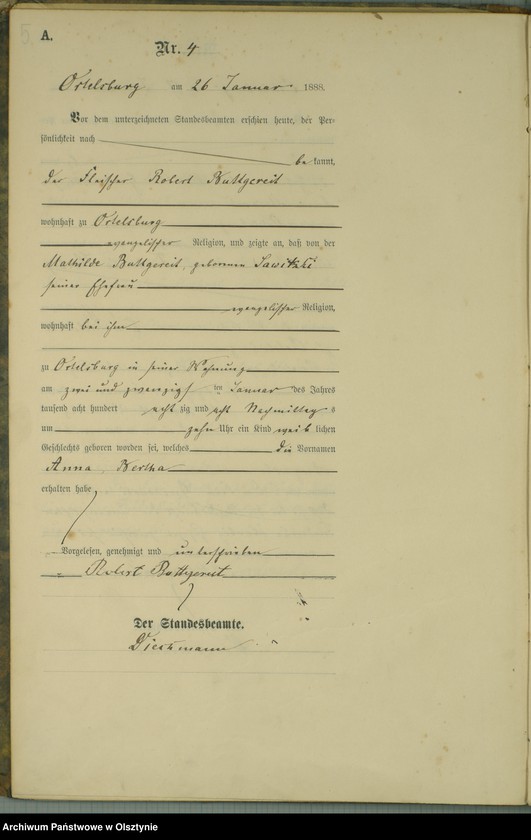 A.
Nr. 4
Ortelsburg am 26 Januar 1888.
Vor dem unterzeichneten Standesbeamten erschien heute, der Per-
sönlichkeit nach
be kannt,
der Fleischer Robert Buttgereit
wohnhaft zu Ortelsburg
evangelischer Religion, und zeigte an, daß von der
Mathilde Buttgereit, geborenen Sawitzki
seiner Ehefrau
evangelischer Religion,
wohnhaft bei ihm
zu Ortelsburg in seiner Wohnung
am zwei und zwanzigsten Januar des Jahres
tausend acht hundert acht zig und acht Nachmittags
um zehn Uhr ein Kind weib lichen
Geschlechts geboren worden sei, welches die Vornamen
Anna Bertha
erhalten habe
Vorgelesen, genehmigt und unterschrieben
Robert Buttgereit
Der Standesbeamte.
Archiwum Państwowe w Olsztynie